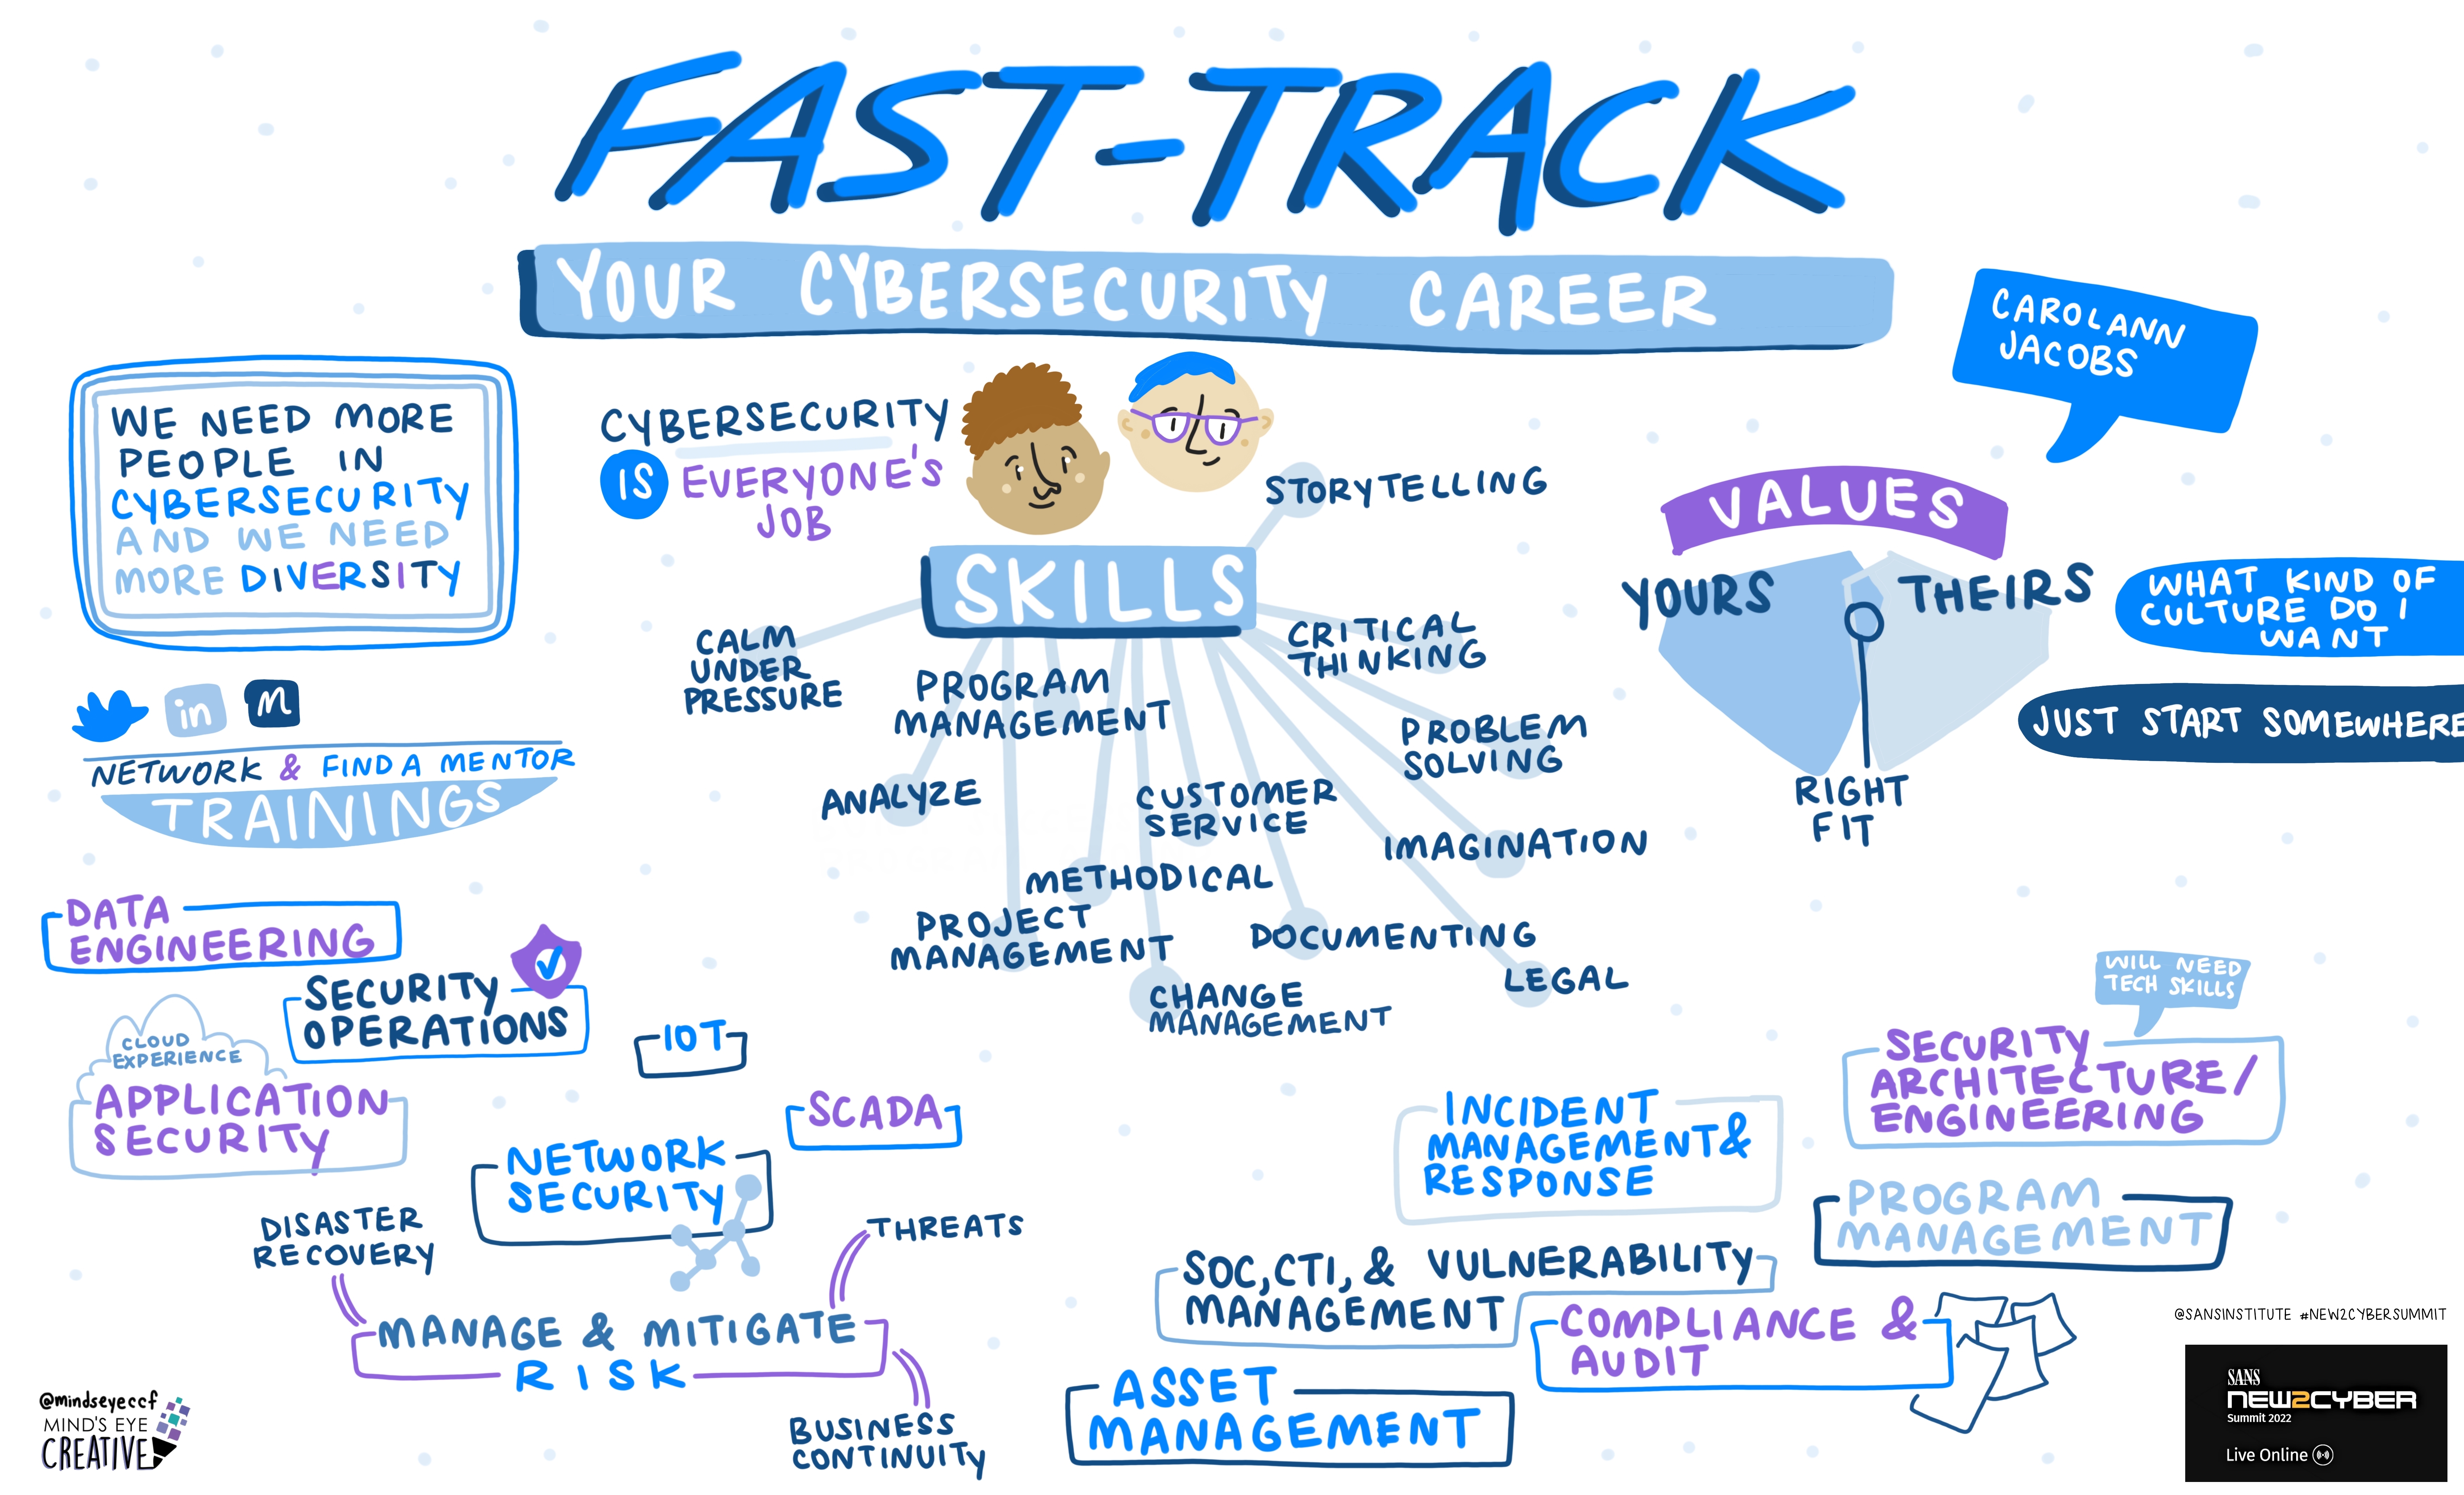 FAST-TRACK
YOUR CYBERSECURITY CAREER
CAROLANN
JACOBS
WE NEED MORE
PEOPLE IN
CYBERSECURITY
AND WE NEED
MORE DIVERSITY
CYBERSECURITY
IS EVERYONE'S
JOB
SKILLS
STORYTELLING
CALM
UNDER
PRESSURE
PROGRAM
MANAGEMENT
CRITICAL
THINKING
PROBLEM
SOLVING
ANALYZE
CUSTOMER
SERVICE
IMAGINATION
METHODICAL
PROJECT
MANAGEMENT
DOCUMENTING
LEGAL
CHANGE
MANAGEMENT
VALUES
YOURS
THEIRS
RIGHT
FIT
WHAT KIND OF
CULTURE DO I
WANT
JUST START SOMEWHERE
in
m
NETWORK & FIND A MENTOR
TRAININGS
DATA
ENGINEERING
SECURITY
OPERATIONS
CLOUD
EXPERIENCE
APPLICATION
SECURITY
IOT
SCADA
NETWORK
SECURITY
DISASTER
RECOVERY
THREATS
MANAGE & MITIGATE
RISK
BUSINESS
CONTINUITY
INCIDENT
MANAGEMENT &
RESPONSE
WILL NEED
TECH SKILLS
SECURITY
ARCHITECTURE/
ENGINEERING
PROGRAM
MANAGEMENT
SOC, CTI, & VULNERABILITY
MANAGEMENT
COMPLIANCE &
AUDIT
ASSET
MANAGEMENT
@mindseyeccf
MIND'S EYE
CREATIVE
@SANSINSTITUTE #NEW2CYBERSUMMIT
SANS
NEW2CYBER
Summit 2022
Live Online